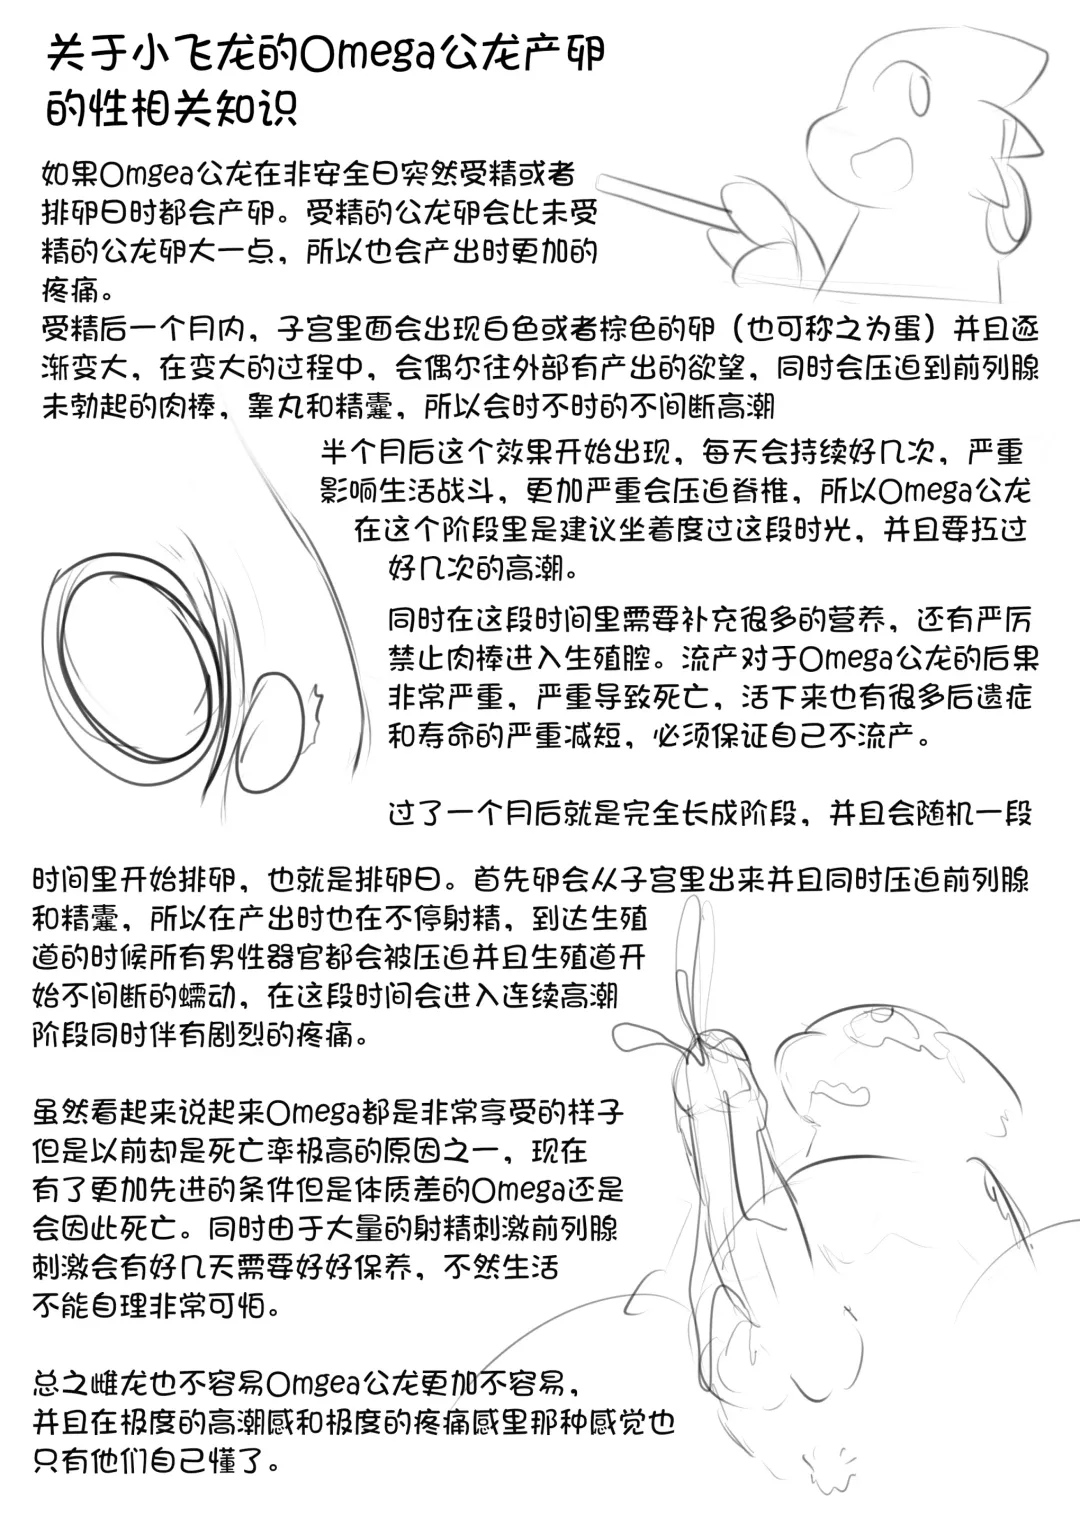 关于小飞龙的Omega公龙产卵
的性相关知识
如果Omgea公龙在非安全日突然受精或者
排卵日时都会产卵。受精的公龙卵会比未受
精的公龙卵大一点，所以也会产出时更加的
疼痛。
受精后一个月内，子宫里面会出现白色或者棕色的卵（也可称之为蛋）并且逐
渐变大，在变大的过程中，会偶尔往外部有产出的欲望，同时会压迫到前列腺
未勃起的肉棒，睾丸和精囊，所以会时不时的不间断高潮
半个月后这个效果开始出现，每天会持续好几次，严重
影响生活战斗，更加严重会压迫脊椎，所以Omega公龙
在这个阶段里是建议坐着度过这段时光，并且要扛过
好几次的高潮。
同时在这段时间里需要补充很多的营养，还有严厉
禁止肉棒进入生殖腔。流产对于Omega公龙的后果
非常严重，严重导致死亡，活下来也有很多后遗症
和寿命的严重减短，必须保证自己不流产。
过了一个月后就是完全长成阶段，并且会随机一段
时间里开始排卵，也就是排卵日。首先卵会从子宫里出来并且同时压迫前列腺
和精囊，所以在产出时也在不停射精，到达生殖
道的时候所有男性器官都会被压迫并且生殖道开
始不间断的蠕动，在这段时间会进入连续高潮
阶段同时伴有剧烈的疼痛。
虽然看起来说起来Omega都是非常享受的样子
但是以前却是死亡率极高的原因之一，现在
有了更加先进的条件但是体质差的Omega还是
会因此死亡。同时由于大量的射精刺激前列腺
刺激会有好几天需要好好保养，不然生活
不能自理非常可怕。
总之雌龙也不容易Omgea公龙更加不容易，
并且在极度的高潮感和极度的疼痛感里那种感觉也
只有他们自己懂了。